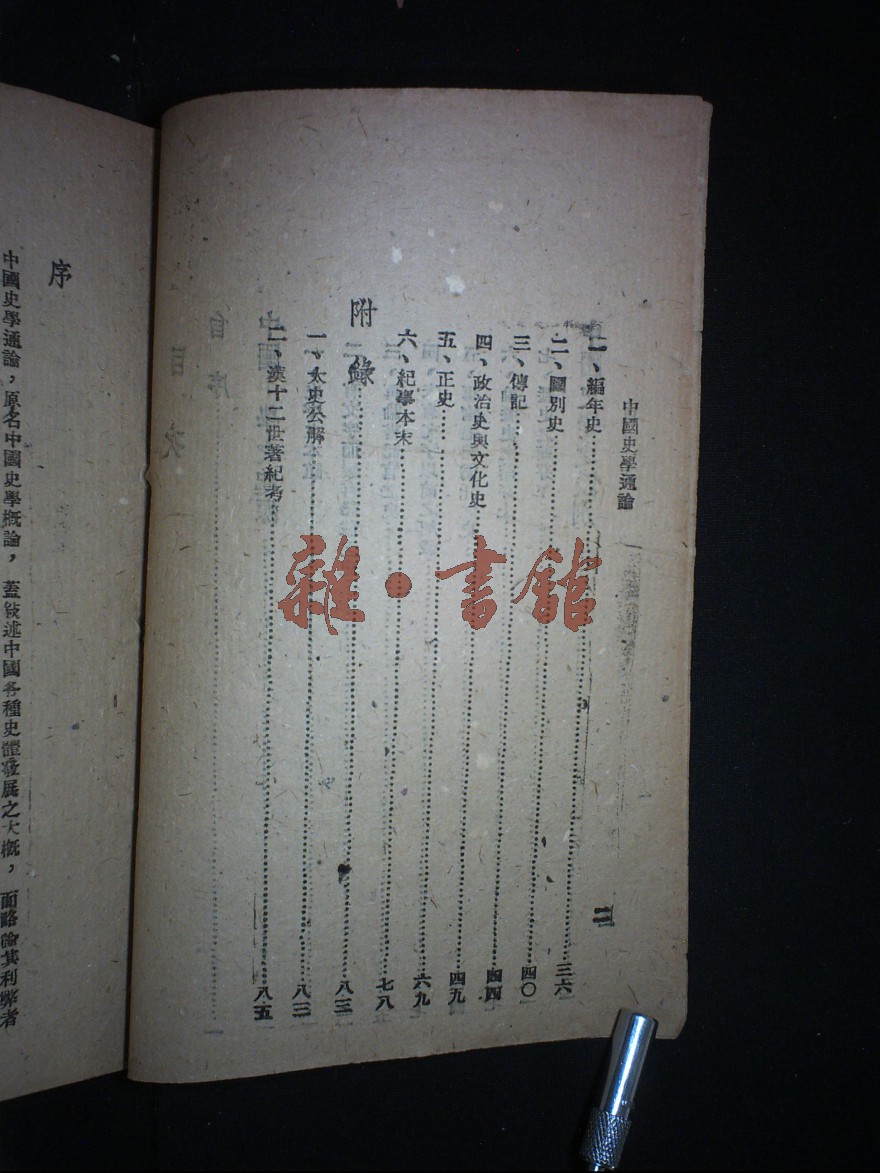 中國史學通論
二
一、編年史 三六
二、國別史 四〇
三、傳記 四四
四、政治史與文化史 四九
五、正史 六九
六、紀事本末 七八
附錄 八三
一、太史公解 八三
二、漢十二世著紀考 八五
序
中國史學通論，原名中國史學概論，蓋敍述中國各種史體發展之大概，而略論其利弊者
雜·書館
自序
目次